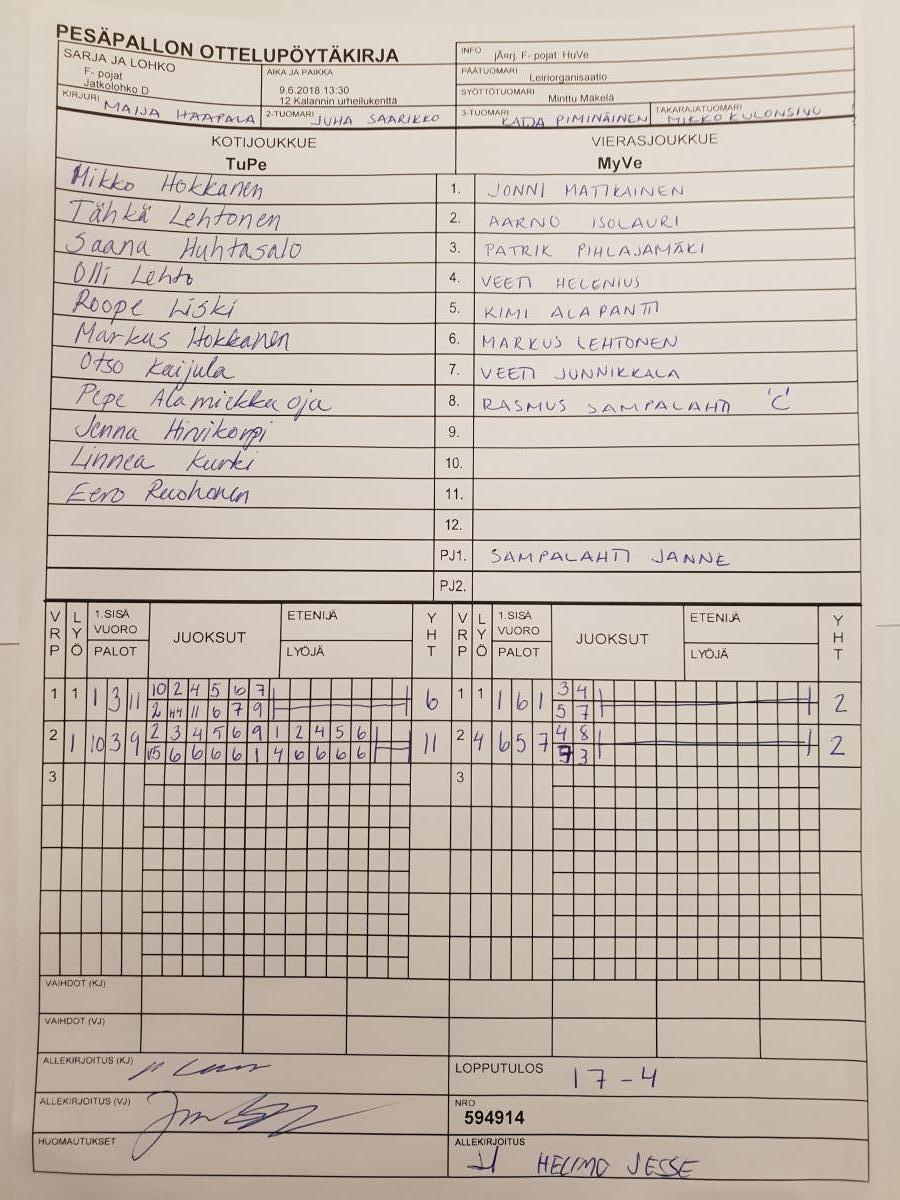 PESÄPALLON OTTELUPÖYTÄKIRJA
SARJA JA LOHKO
F- pojat
Jatkolohko D
AIKA JA PAIKKA
9.6.2018 13:30
12 Kalannin urheilukenttä
INFO jÄorj. F- pojat: HuVe
PÄÄTUOMARI Leiriorganisaatio
SYÖTTÖTUOMARI Minttu Mäkelä
KIRJURI MAIJA HAAPALA
2-TUOMARI JUHA SAARIKKO
3-TUOMARI KATJA PIMINÄINEN
TAKARAJATUOMARI MIKKO KULONSIVU
KOTIJOUKKUE VIERASJOUKKUE
TuPe MyVe
Mikko Hokkanen 1. JONNI MATIKAINEN
Tähkä Lehtonen 2. AARNO ISOLAURI
Saana Huhtasalo 3. PATRIK PIHLAJAMÄKI
Olli Lehto 4. VEETI HELENIUS
Roope Liski 5. KIMI ALAPANTTI
Markus Hokkanen 6. MARKUS LEHTONEN
Otso Kaijula 7. VEETI JUNNIKKALA
Pepe Alamiekkaoja 8. RASMUS SAMPALAHTI 'C'
Jenna Hirvikorpi 9.
Linnea Kurki 10.
Eero Ruohonen 11.
12.
PJ1. SAMPALAHTI JANNE
PJ2.
VRP LYÖ 1.SISÄ VUORO PALOT JUOKSUT ETENIJÄ LYÖJÄ YHT VRP LYÖ 1.SISÄ VUORO PALOT JUOKSUT ETENIJÄ LYÖJÄ YHT
1 1 1 3 11 10 2 4 5 6 7 6 1 1 1 6 1 3 4 2
2 11 6 7 9 5 7
2 1 10 3 9 2 3 4 5 6 9 1 2 4 5 6 11 2 4 6 5 7 4 8 2
15 6 6 6 6 1 4 6 6 6 6 3
3 3
VAIHDOT (KJ)
VAIHDOT (VJ)
ALLEKIRJOITUS (KJ)
LOPPUTULOS 17-4
ALLEKIRJOITUS (VJ)
NRO
594914
HUOMAUTUKSET
ALLEKIRJOITUS
HELIMO JESSE